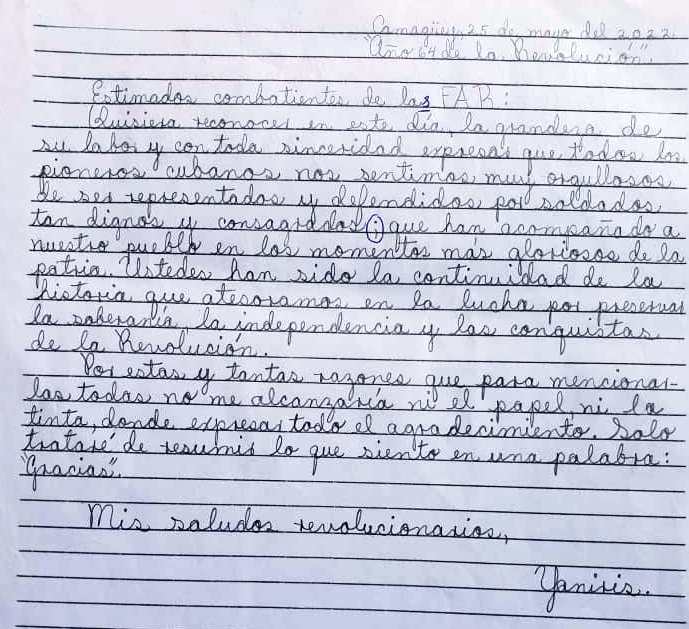 Camagüey, 25 de mayo del 2022.
"Año 64 de la Revolución".
Estimados combatientes de las FAR:
Quisiera reconocer en este día, la grandeza de
su labor y con toda sinceridad expresar que todos los
pioneros cubanos nos sentimos muy orgullosos
de ser representados y defendidos por soldados
tan dignos y consagrados; que han acompañado a
nuestro pueblo en los momentos más gloriosos de la
patria. Ustedes han sido la continuidad de la
historia que atesoramos en la lucha por preservar
la soberanía, la independencia y las conquistas
de la Revolución.
Por estas y tantas razones que para mencionar-
las todas no me alcanzaría ni el papel, ni la
tinta, donde expresar todo el agradecimiento. Solo
trataré de resumir lo que siento en una palabra:
"Gracias".
Mis saludos revolucionarios,
Yanisis.